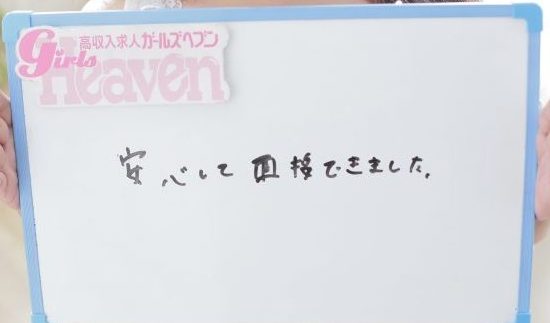 高収入求人ガールズヘブン
Girls
Heaven
安心して面接できました。